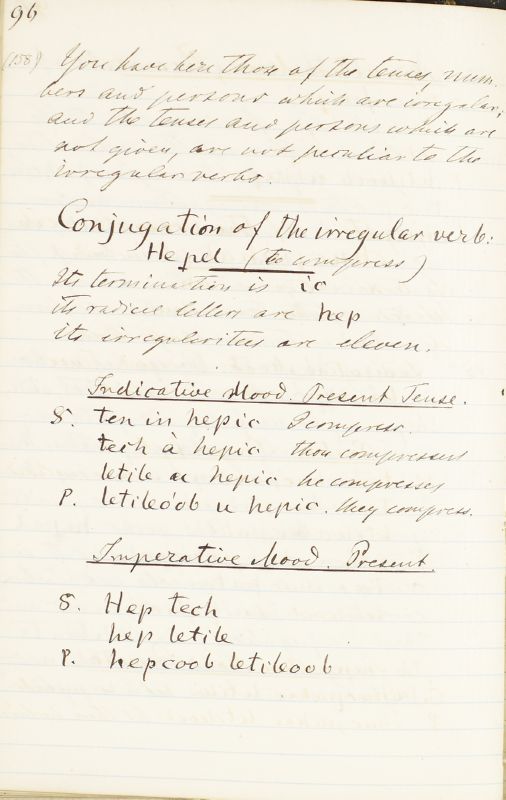 96
(158) You have here those of the tenses, num-
bers and persons which are irregular;
and the tenses and persons which are
not given, are not peculiar to the
irregular verbs.
Conjugation of the irregular verb:
Hepel (to compress)
Its termination is ic
its radical letters are hep
its irregularities are eleven.
Indicative Mood. Present Tense.
S. ten in hepic I compress.
tech à hepic thou compressest
letile u hepic he compresses
P. letileó'ob u hepic. they compress.
Imperative Mood. Present.
S. Hep tech
hep letile
P. hepcoob letileoob